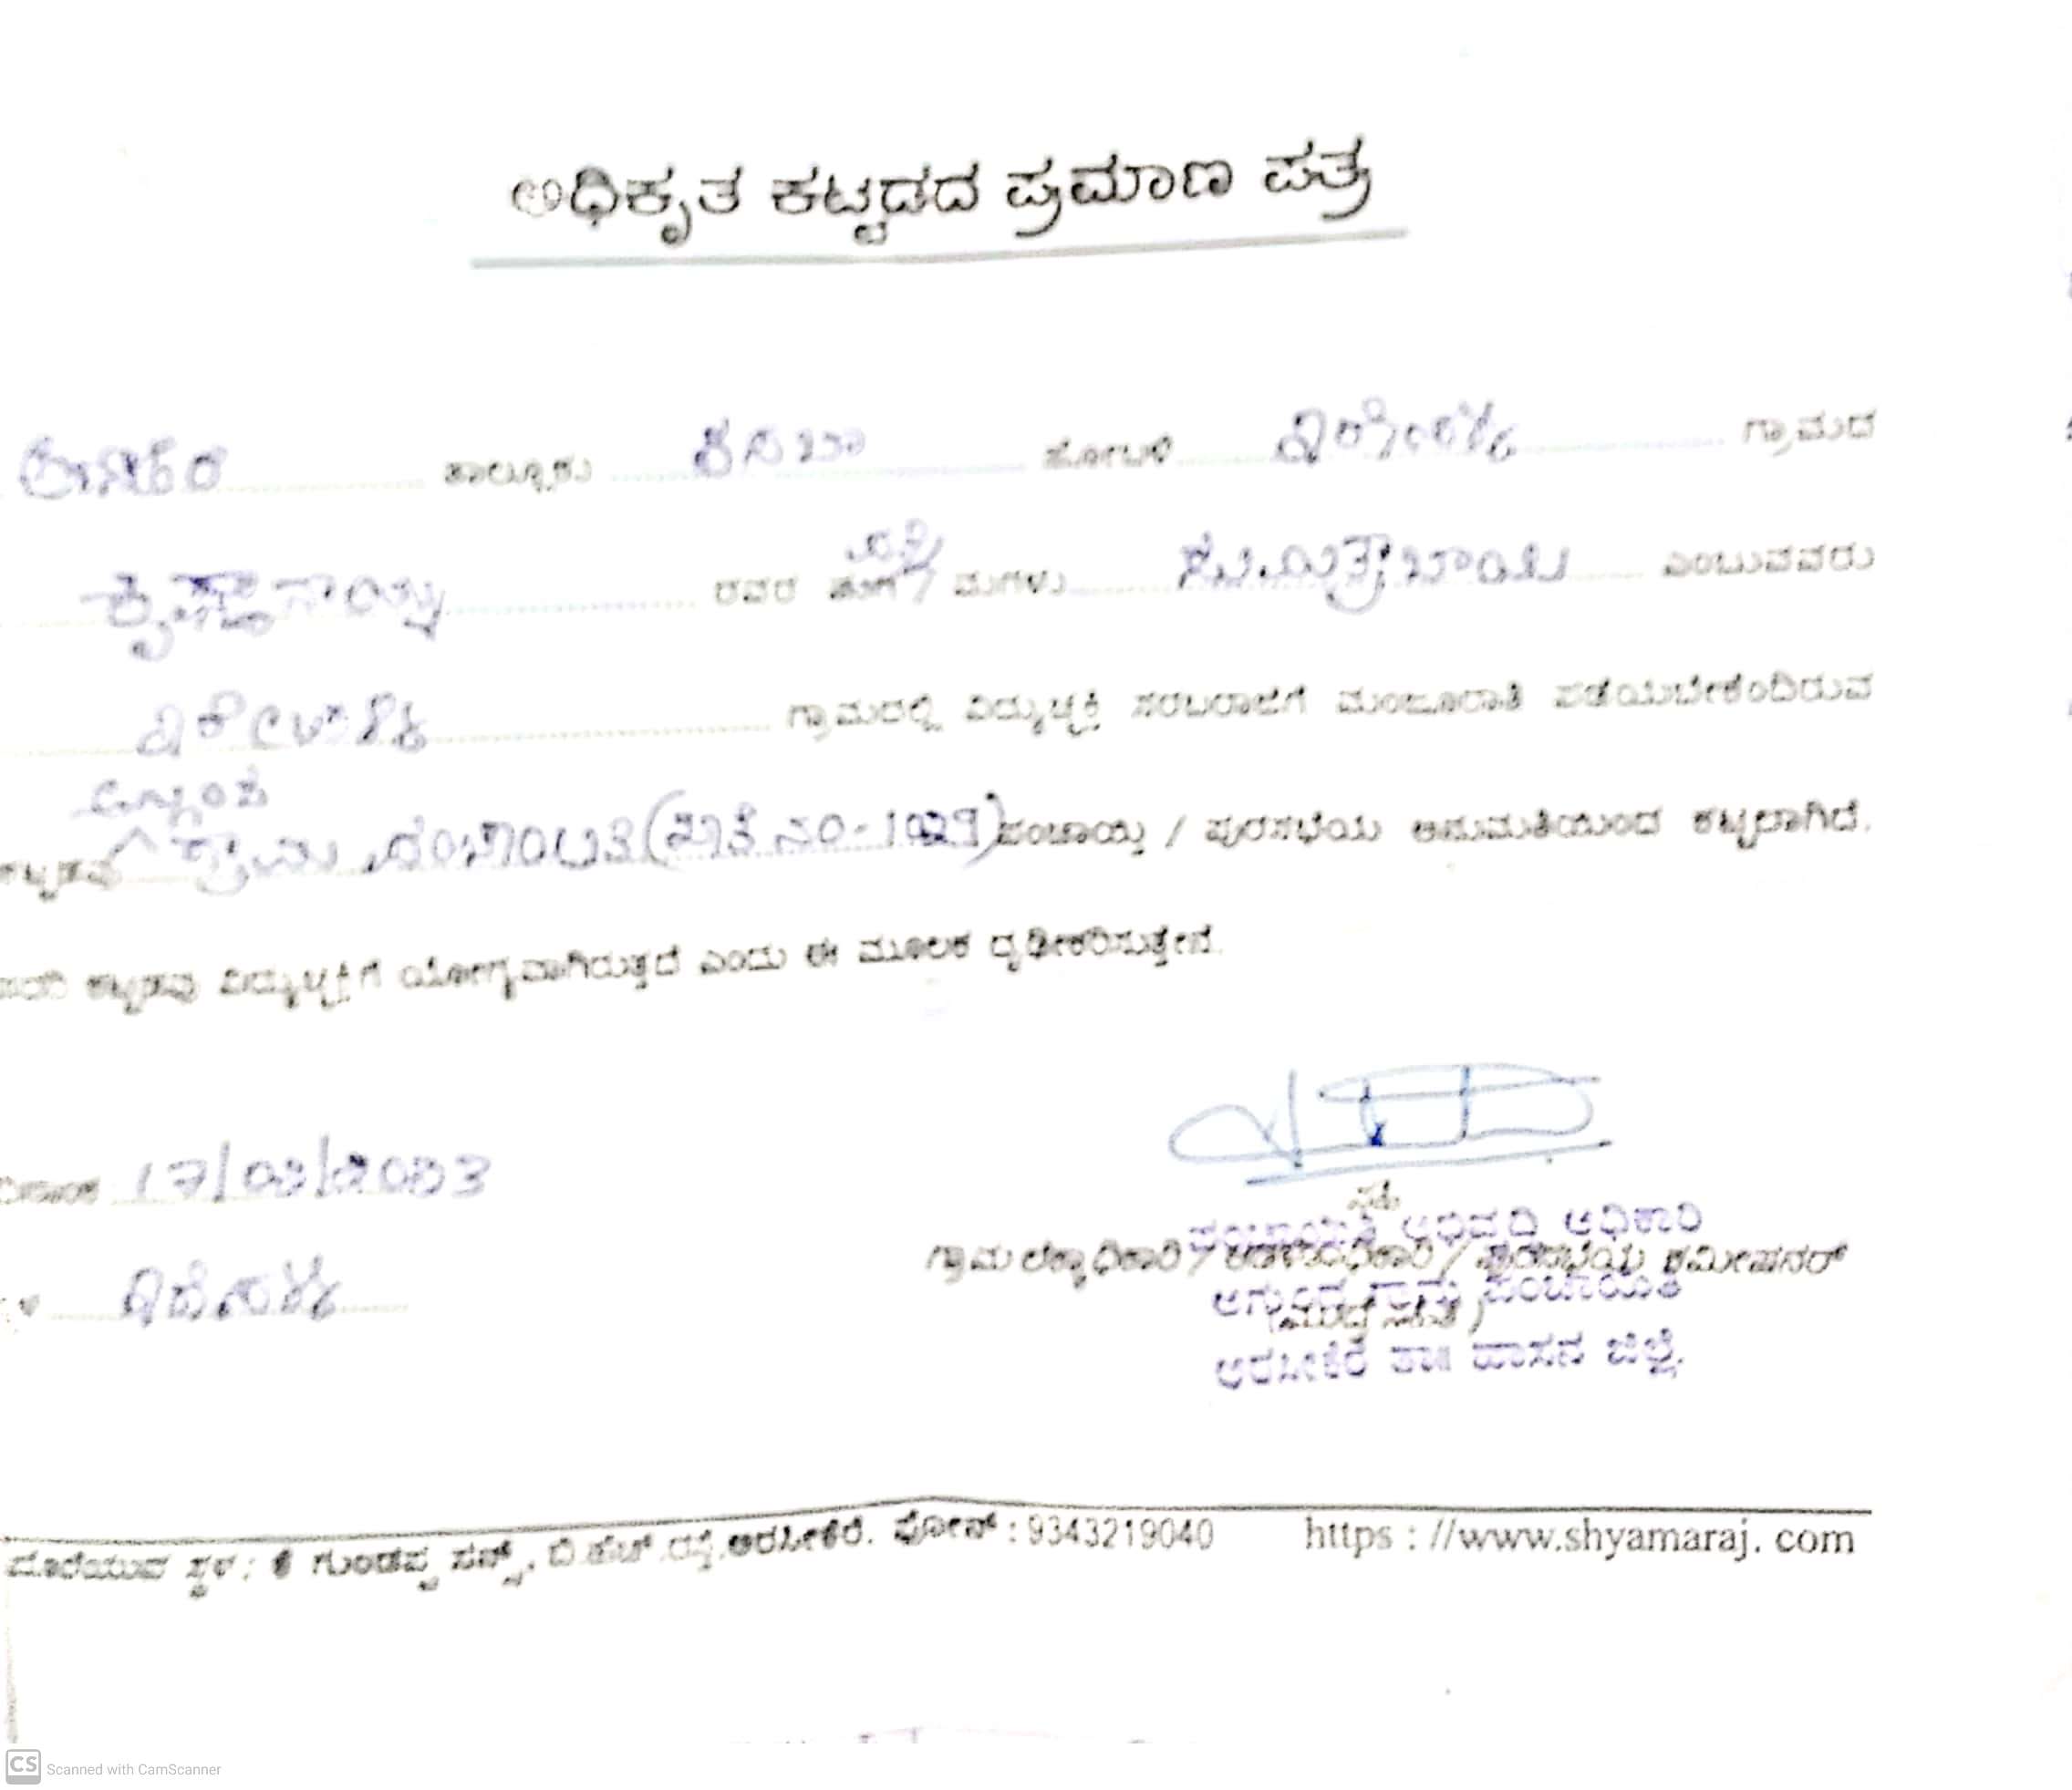 ಅಧಿಕೃತ ಕಟ್ಟಡದ ಪ್ರಮಾಣ ಪತ್ರ
ತಾಲ್ಲೂಕು ಕಸಬಾ ಹೋಬಳಿ ಗ್ರಾಮದ
ಕೃಷ್ಣಾನಾಯ್ಕ ರವರ ಪತ್ನಿ ಮಗ / ಮಗಳು ಎಂಬುವವರು
ಗ್ರಾಮದಲ್ಲಿ ವಿದ್ಯುಚ್ಛಕ್ತಿ ಸರಬರಾಜಿಗೆ ಮಂಜೂರಾತಿ ಪಡೆಯಬೇಕೆಂದಿರುವ
ಕಟ್ಟಡವು ಗ್ರಾಮ ಪಂಚಾಯತಿ (ಖಾತೆ ನಂ - 1029) ಪಂಚಾಯ್ತಿ / ಪುರಸಭೆಯ ಅನುಮತಿಯಿಂದ ಕಟ್ಟಲಾಗಿದೆ.
ಕಟ್ಟಡವು ವಿದ್ಯುಚ್ಛಕ್ತಿಗೆ ಯೋಗ್ಯವಾಗಿರುತ್ತದೆ ಎಂದು ಈ ಮೂಲಕ ದೃಢೀಕರಿಸುತ್ತೇನೆ.
ದಿನಾಂಕ 17/03/2023
ಸಹಿ
ಪಂಚಾಯಿತಿ ಅಭಿವೃದ್ಧಿ ಅಧಿಕಾರಿ
ಗ್ರಾಮ ಲೆಕ್ಕಾಧಿಕಾರಿ / / ಪುರಸಭೆಯ ಕಮೀಷನರ್
ಗ್ರಾಮ ಪಂಚಾಯಿತಿ
(ಮುದ್ರೆ ಸಹಿತ)
ಅರಸೀಕೆರೆ ತಾ॥ ಹಾಸನ ಜಿಲ್ಲೆ.
ದೊರೆಯುವ ಸ್ಥಳ : ಕೆ ಗುಂಡಪ್ಪ ಸನ್ಸ್, ಬಿ.ಹೆಚ್.ರಸ್ತೆ.ಅರಸೀಕೆರೆ. ಫೋನ್ : 9343219040 https : //www.shyamaraj. com
CS Scanned with CamScanner